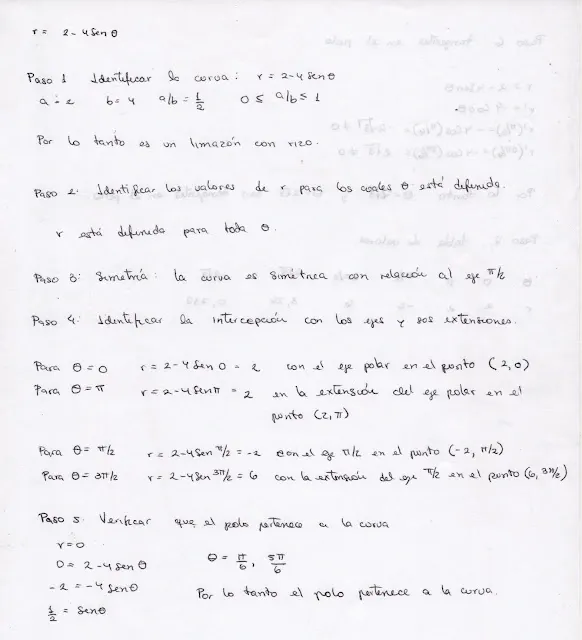 r = 2 - 4 Sen θ
Paso 1 Identificar la curva: r = 2-4 Sen θ
a = 2 b = 4 a/b = 1/2 0 ≤ a/b ≤ 1
Por lo tanto es un limazón con rizo.
Paso 2. Identificar los valores de r para los cuales θ está definida.
r está definida para toda θ.
Paso 3: Simetría: la curva es simétrica con relación al eje π/2
Paso 4. Identificar la intercepción con los ejes y sus extensiones.
Para θ = 0 r = 2-4 Sen 0 = 2 con el eje polar en el punto (2,0)
Para θ = π r = 2-4 Sen π = 2 en la extensión del eje polar en el
punto (2, π)
Para θ = π/2 r = 2-4 Sen π/2 = -2 con el eje π/2 en el punto (-2, π/2)
Para θ = 3π/2 r = 2-4 Sen 3π/2 = 6 con la extensión del eje π/2 en el punto (6, 3π/2)
Paso 5. Verificar que el polo pertenece a la curva
r = 0
0 = 2-4 Sen θ θ = π/6, 5π/6
-2 = -4 Sen θ Por lo tanto el polo pertenece a la curva.
1/2 = Sen θ